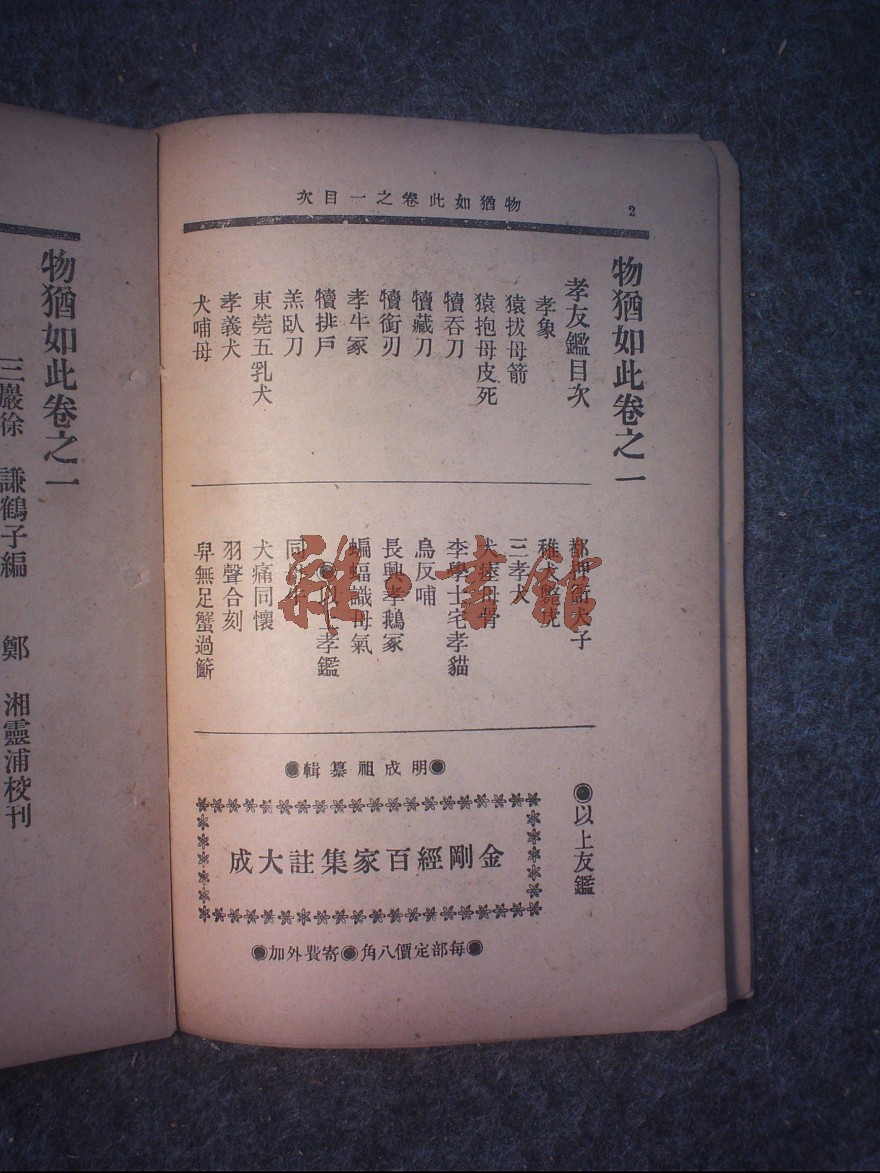 物猶如此卷之一目次
2
物猶如此卷之一
孝友鑑目次
孝象
猿拔母箭
猿抱母皮死
犢吞刀
犢藏刀
犢銜刃
孝牛冢
犢排戶
羔臥刀
東莞五乳犬
孝義犬
犬哺母
犬子
稚犬
三孝犬
犬瘞母骨
李學士宅孝貓
烏反哺
長興孝鵝冢
蝙蝠識母氣
●以上孝鑑
同
犬痛同懷
羽聲合刻
舁無足蟹過籪
●以上友鑑
●明成祖纂輯●
金剛經百家集註大成
●每部定價八角●寄費外加●
物猶如此卷之一
三巖徐 謙鶴子編 鄭 湘靈浦校刊
雜·書館